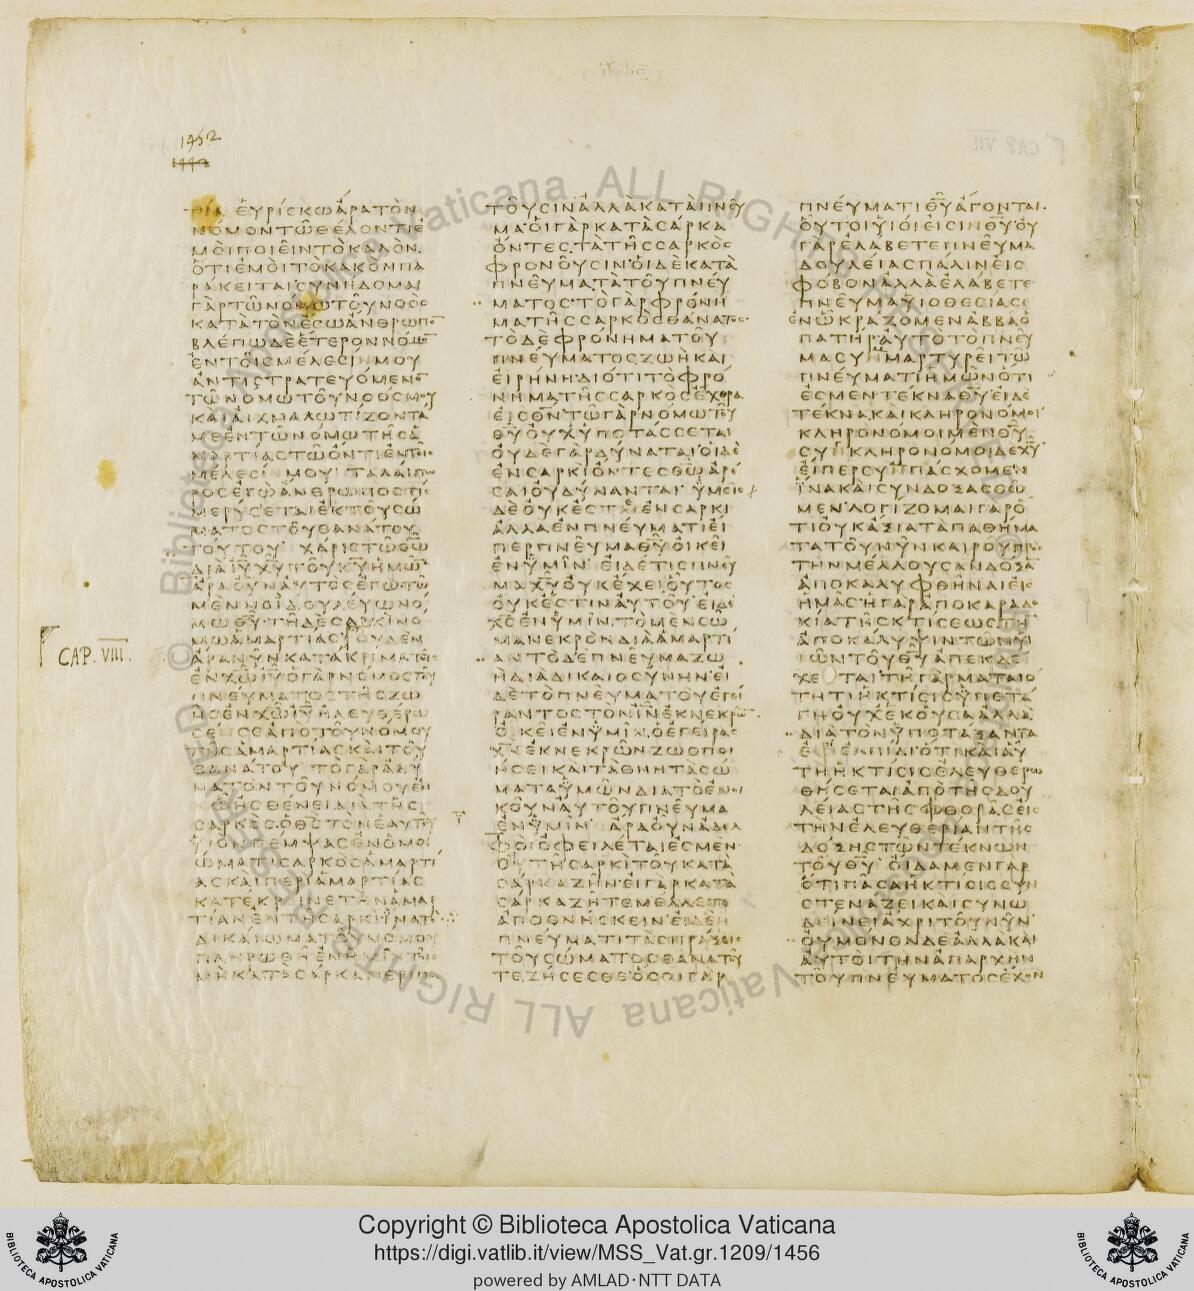 1452
ΤΙΑ ΕΥΡΙCΚΩ ΑΡΑ ΤΟΝ
ΝΟΜΟΝ ΤΩ ΘΕΛΟΝΤΙ Ε
ΜΟΙ ΠΟΙΕΙΝ ΤΟ ΚΑΛΟΝ
ΟΤΙ ΕΜΟΙ ΤΟ ΚΑΚΟΝ ΠΑ
ΡΑΚΕΙΤΑΙ CΥΝΗΔΟΜΑΙ
ΓΑΡ ΤΩ ΝΟΜΩ ΤΟΥ ΝΟΟC
ΚΑΤΑ ΤΟΝ ΕCΩ ΑΝΘΡΩΠΟ
ΒΛΕΠΩ ΔΕ ΕΤΕΡΟΝ ΝΟΜΟ
ΕΝ ΤΟΙC ΜΕΛΕCΙΝ ΜΟΥ
ΑΝΤΙCΤΡΑΤΕΥΟΜΕΝΟ
ΤΩ ΝΟΜΩ ΤΟΥ ΝΟΟC ΜΟΥ
ΚΑΙ ΑΙΧΜΑΛΩΤΙΖΟΝΤΑ
ΜΕ ΕΝ ΤΩ ΝΟΜΩ ΤΗC Α
ΜΑΡΤΙΑC ΤΩ ΟΝΤΙ ΕΝ ΤΟΙC
ΜΕΛΕCΙΝ ΜΟΥ ΤΑΛΑΙΠΩ
ΡΟC ΕΓΩ ΑΝΘΡΩΠΟC ΤΙC
ΜΕ ΡΥCΕΤΑΙ ΕΚ ΤΟΥ CΩ
ΜΑΤΟC ΤΟΥ ΘΑΝΑΤΟΥ
ΤΟΥΤΟΥ ΧΑΡΙC ΤΩ ΘΩ
ΔΙΑ ΙΥ ΧΥ ΤΟΥ ΚΥ ΗΜΩ
ΑΡΑ ΟΥΝ ΑΥΤΟC ΕΓΩ ΤΩ
ΜΕΝ ΝΟΙ ΔΟΥΛΕΥΩ ΝΟ
ΜΩ ΘΥ ΤΗ ΔΕ CΑΡΚΙ ΝΟ
ΜΩ ΑΜΑΡΤΙΑC ΟΥΔΕΝ
ΑΡΑ ΝΥΝ ΚΑΤΑΚΡΙΜΑ ΤΟΙC
ΕΝ ΧΩ ΙΥ Ο ΓΑΡ ΝΟΜΟC ΤΟΥ
ΠΝΕΥΜΑΤΟC ΤΗC ΖΩ
ΗC ΕΝ ΧΩ ΙΥ ΗΛΕΥΘΕΡΩ
CΕΝ CΕ ΑΠΟ ΤΟΥ ΝΟΜΟΥ
ΤΗC ΑΜΑΡΤΙΑC ΚΑΙ ΤΟΥ
ΘΑΝΑΤΟΥ ΤΟ ΓΑΡ ΑΔΥ
ΝΑΤΟΝ ΤΟΥ ΝΟΜΟΥ ΕΝ
Ω ΗCΘΕΝΕΙ ΔΙΑ ΤΗC
CΑΡΚΟC Ο ΘC ΤΟΝ ΕΑΥΤΟΥ
ΥΙΟΝ ΠΕΜΨΑC ΕΝ ΟΜΟΙ
ΩΜΑΤΙ CΑΡΚΟC ΑΜΑΡΤΙ
ΑC ΚΑΙ ΠΕΡΙ ΑΜΑΡΤΙΑC
ΚΑΤΕΚΡΙΝΕ ΤΗΝ ΑΜΑΡ
ΤΙΑΝ ΕΝ ΤΗ CΑΡΚΙ ΙΝΑ ΤΟ
ΔΙΚΑΙΩΜΑ ΤΟΥ ΝΟΜΟΥ
ΠΛΗΡΩΘΗ ΕΝ ΗΜΙΝ ΤΟΙC
ΜΗ ΚΑΤΑ CΑΡΚΑ ΠΕΡΙΠΑ
CAP. VIII.
ΤΟΥCΙΝ ΑΛΛΑ ΚΑΤΑ ΠΝΕΥ
ΜΑ ΟΙ ΓΑΡ ΚΑΤΑ CΑΡΚΑ
ΟΝΤΕC ΤΑ ΤΗC CΑΡΚΟC
ΦΡΟΝΟΥCΙΝ ΟΙ ΔΕ ΚΑΤΑ
ΠΝΕΥΜΑ ΤΑ ΤΟΥ ΠΝΕΥ
ΜΑΤΟC ΤΟ ΓΑΡ ΦΡΟΝΗ
ΜΑ ΤΗC CΑΡΚΟC ΘΑΝΑΤΟC
ΤΟ ΔΕ ΦΡΟΝΗΜΑ ΤΟΥ
ΠΝΕΥΜΑΤΟC ΖΩΗ ΚΑΙ
ΕΙΡΗΝΗ ΔΙΟΤΙ ΤΟ ΦΡΟ
ΝΗΜΑ ΤΗC CΑΡΚΟC ΕΧΘΡΑ
ΕΙC ΘΝ ΤΩ ΓΑΡ ΝΟΜΩ ΤΟΥ
ΘΥ ΟΥΧ ΥΠΟΤΑCCΕΤΑΙ
ΟΥΔΕ ΓΑΡ ΔΥΝΑΤΑΙ ΟΙ ΔΕ
ΕΝ CΑΡΚΙ ΟΝΤΕC ΘΩ ΑΡΕ
CΑΙ ΟΥ ΔΥΝΑΝΤΑΙ ΥΜΕΙC
ΔΕ ΟΥΚ ΕCΤΕ ΕΝ CΑΡΚΙ
ΑΛΛΑ ΕΝ ΠΝΕΥΜΑΤΙ ΕΙ
ΠΕΡ ΠΝΕΥΜΑ ΘΥ ΟΙΚΕΙ
ΕΝ ΥΜΙΝ ΕΙ ΔΕ ΤΙC ΠΝΕΥ
ΜΑ ΧΥ ΟΥΚ ΕΧΕΙ ΟΥΤΟC
ΟΥΚ ΕCΤΙΝ ΑΥΤΟΥ ΕΙ ΔΕ
ΧC ΕΝ ΥΜΙΝ ΤΟ ΜΕΝ CΩ
ΜΑ ΝΕΚΡΟΝ ΔΙΑ ΑΜΑΡΤΙ
ΑΝ ΤΟ ΔΕ ΠΝΕΥΜΑ ΖΩ
Η ΔΙΑ ΔΙΚΑΙΟCΥΝΗΝ ΕΙ
ΔΕ ΤΟ ΠΝΕΥΜΑ ΤΟΥ ΕΓΕΙ
ΡΑΝΤΟC ΤΟΝ ΙΝ ΕΚ ΝΕΚΡΩ
ΟΙΚΕΙ ΕΝ ΥΜΙΝ Ο ΕΓΕΙΡΑC
ΧΝ ΕΚ ΝΕΚΡΩΝ ΖΩΟΠΟΙ
ΗCΕΙ ΚΑΙ ΤΑ ΘΝΗΤΑ CΩ
ΜΑΤΑ ΥΜΩΝ ΔΙΑ ΤΟ ΕΝΟΙ
ΚΟΥΝ ΑΥΤΟΥ ΠΝΕΥΜΑ
ΕΝ ΥΜΙΝ ΑΡΑ ΟΥΝ ΑΔΕΛ
ΦΟΙ ΟΦΕΙΛΕΤΑΙ ΕCΜΕΝ
ΟΥ ΤΗ CΑΡΚΙ ΤΟΥ ΚΑΤΑ
CΑΡΚΑ ΖΗΝ ΕΙ ΓΑΡ ΚΑΤΑ
CΑΡΚΑ ΖΗΤΕ ΜΕΛΛΕΤΕ
ΑΠΟΘΝΗCΚΕΙΝ ΕΙ ΔΕ
ΠΝΕΥΜΑΤΙ ΤΑC ΠΡΑΞΕΙC
ΤΟΥ CΩΜΑΤΟC ΘΑΝΑΤΟΥ
ΤΕ ΖΗCΕCΘΕ ΟCΟΙ ΓΑΡ
ΠΝΕΥΜΑΤΙ ΘΥ ΑΓΟΝΤΑΙ
ΟΥΤΟΙ ΥΙΟΙ ΕΙCΙΝ ΘΥ ΟΥ
ΓΑΡ ΕΛΑΒΕΤΕ ΠΝΕΥΜΑ
ΔΟΥΛΕΙΑC ΠΑΛΙΝ ΕΙC
ΦΟΒΟΝ ΑΛΛΑ ΕΛΑΒΕΤΕ
ΠΝΕΥΜΑ ΥΙΟΘΕCΙΑC
ΕΝ Ω ΚΡΑΖΟΜΕΝ ΑΒΒΑ Ο
ΠΑΤΗΡ ΑΥΤΟ ΤΟ ΠΝΕΥ
ΜΑ CΥΜΜΑΡΤΥΡΕΙ ΤΩ
ΠΝΕΥΜΑΤΙ ΗΜΩΝ ΟΤΙ
ΕCΜΕΝ ΤΕΚΝΑ ΘΥ ΕΙ ΔΕ
ΤΕΚΝΑ ΚΑΙ ΚΛΗΡΟΝΟΜΟΙ
ΚΛΗΡΟΝΟΜΟΙ ΜΕΝ ΘΥ
CΥΓΚΛΗΡΟΝΟΜΟΙ ΔΕ ΧΥ
ΕΙΠΕΡ CΥΜΠΑCΧΟΜΕΝ
ΙΝΑ ΚΑΙ CΥΝΔΟΞΑCΘΩ
ΜΕΝ ΛΟΓΙΖΟΜΑΙ ΓΑΡ Ο
ΤΙ ΟΥΚ ΑΞΙΑ ΤΑ ΠΑΘΗΜΑ
ΤΑ ΤΟΥ ΝΥΝ ΚΑΙΡΟΥ ΠΡΟC
ΤΗΝ ΜΕΛΛΟΥCΑΝ ΔΟΞΑ
ΑΠΟΚΑΛΥΦΘΗΝΑΙ ΕΙC
ΗΜΑC Η ΓΑΡ ΑΠΟΚΑΡΑΔΟ
ΚΙΑ ΤΗC ΚΤΙCΕΩC ΤΗ
ΑΠΟΚΑΛΥΨΙΝ ΤΩΝ ΥΙ
ΩΝ ΤΟΥ ΘΥ ΑΠΕΚΔΕ
ΧΕΤΑΙ ΤΗ ΓΑΡ ΜΑΤΑΙΟ
ΤΗΤΙ Η ΚΤΙCΙC ΥΠΕΤΑ
ΓΗ ΟΥΧ ΕΚΟΥCΑ ΑΛΛΑ
ΔΙΑ ΤΟΝ ΥΠΟΤΑΞΑΝΤΑ
ΕΦ ΕΛΠΙΔΙ ΟΤΙ ΚΑΙ ΑΥ
ΤΗ Η ΚΤΙCΙC ΕΛΕΥΘΕΡΩ
ΘΗCΕΤΑΙ ΑΠΟ ΤΗC ΔΟΥ
ΛΕΙΑC ΤΗC ΦΘΟΡΑC ΕΙC
ΤΗΝ ΕΛΕΥΘΕΡΙΑΝ ΤΗC
ΔΟΞΗC ΤΩΝ ΤΕΚΝΩΝ
ΤΟΥ ΘΥ ΟΙΔΑΜΕΝ ΓΑΡ
ΟΤΙ ΠΑCΑ Η ΚΤΙCΙC CΥΝ
CΤΕΝΑΖΕΙ ΚΑΙ CΥΝΩ
ΔΕΙΝΕΙ ΑΧΡΙ ΤΟΥ ΝΥΝ
ΟΥ ΜΟΝΟΝ ΔΕ ΑΛΛΑ ΚΑΙ
ΑΥΤΟΙ ΤΗΝ ΑΠΑΡΧΗΝ
ΤΟΥ ΠΝΕΥΜΑΤΟC ΕΧΟΝ
Copyright © Biblioteca Apostolica Vaticana
https://digi.vatlib.it/view/MSS_Vat.gr.1209/1456
powered by AMLAD·NTT DATA
BIBLIOTECA APOSTOLICA VATICANA
BIBLIOTECA APOSTOLICA VATICANA